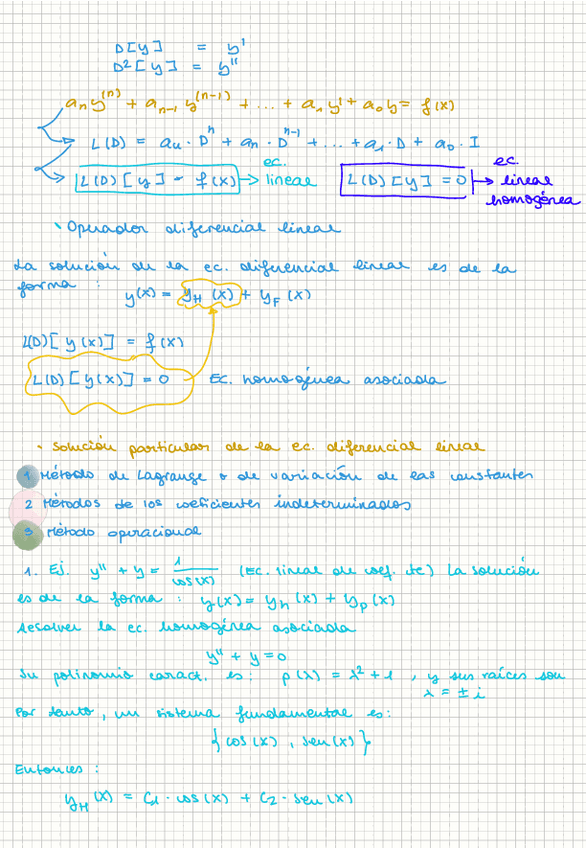 D[y] = y'
D²[y] = y''
aₙy⁽ⁿ⁾ + aₙ₋₁ y⁽ⁿ⁻¹⁾ + ... + a₁ y' + a₀ y = f(x)
L(D) = aₙ · Dⁿ + aₙ · Dⁿ⁻¹ + ... + a₁ · D + a₀ · I
L(D)[y] = f(x) → ec. lineal
L(D)[y] = 0 → ec. lineal homogénea
· Operador diferencial lineal
La solución de la ec. diferencial lineal es de la
forma :
y(x) = y_H (x) + y_F (x)
L(D)[y(x)] = f(x)
L(D)[y(x)] = 0 Ec. homogénea asociada
· Solución particular de la ec. diferencial lineal
1 Método de Lagrange o de variación de las constantes
2 Métodos de los coeficientes indeterminados
3 Método operacional
1. Ej. y'' + y = 1/cos(x) (Ec. lineal de coef. cte) La solución
es de la forma : y(x) = y_h (x) + y_p (x)
Resolver la ec. homogénea asociada
y'' + y = 0
Su polinomio caract. es : p(λ) = λ² + 1 , y sus raíces son
λ = ± i
Por tanto, un sistema fundamental es:
{cos(x) , sen(x)}
Entonces :
y_H (x) = C₁ · cos(x) + C₂ · sen(x)